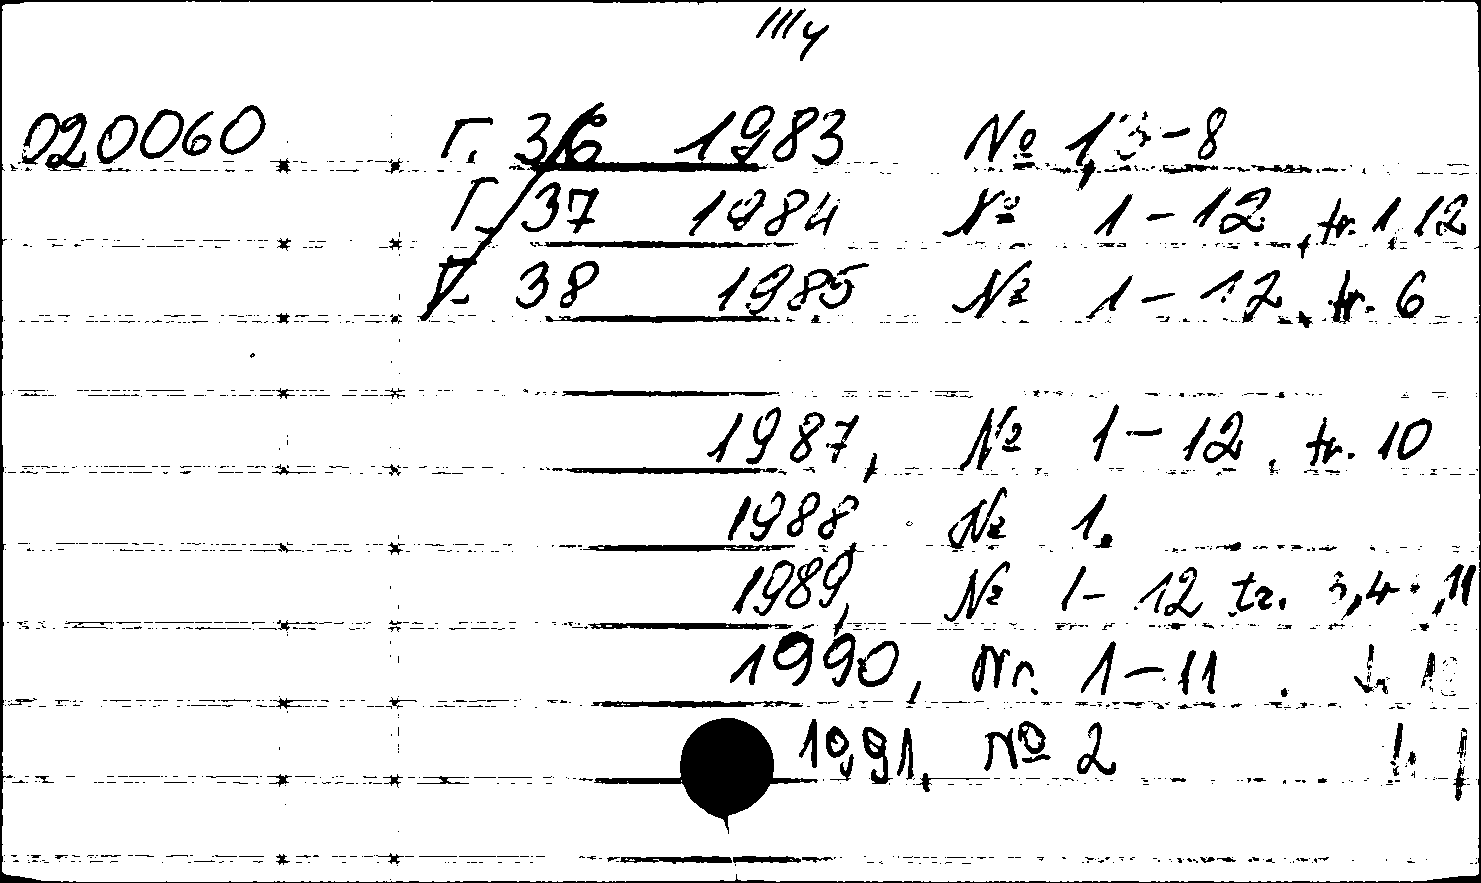 IIIy
020060 Г. 36 1983 № 1,3-8
Г. 37 1984 № 1-12, tr. 1,12
Г. 38 1985 № 1-12, tr. 6
1987, № 1-12, tr. 10
1988, № 1.
1989, № 1-12 tr. 3,4 ,11
1990, Nr. 1-11. tr 12
1991, № 2 tr 1